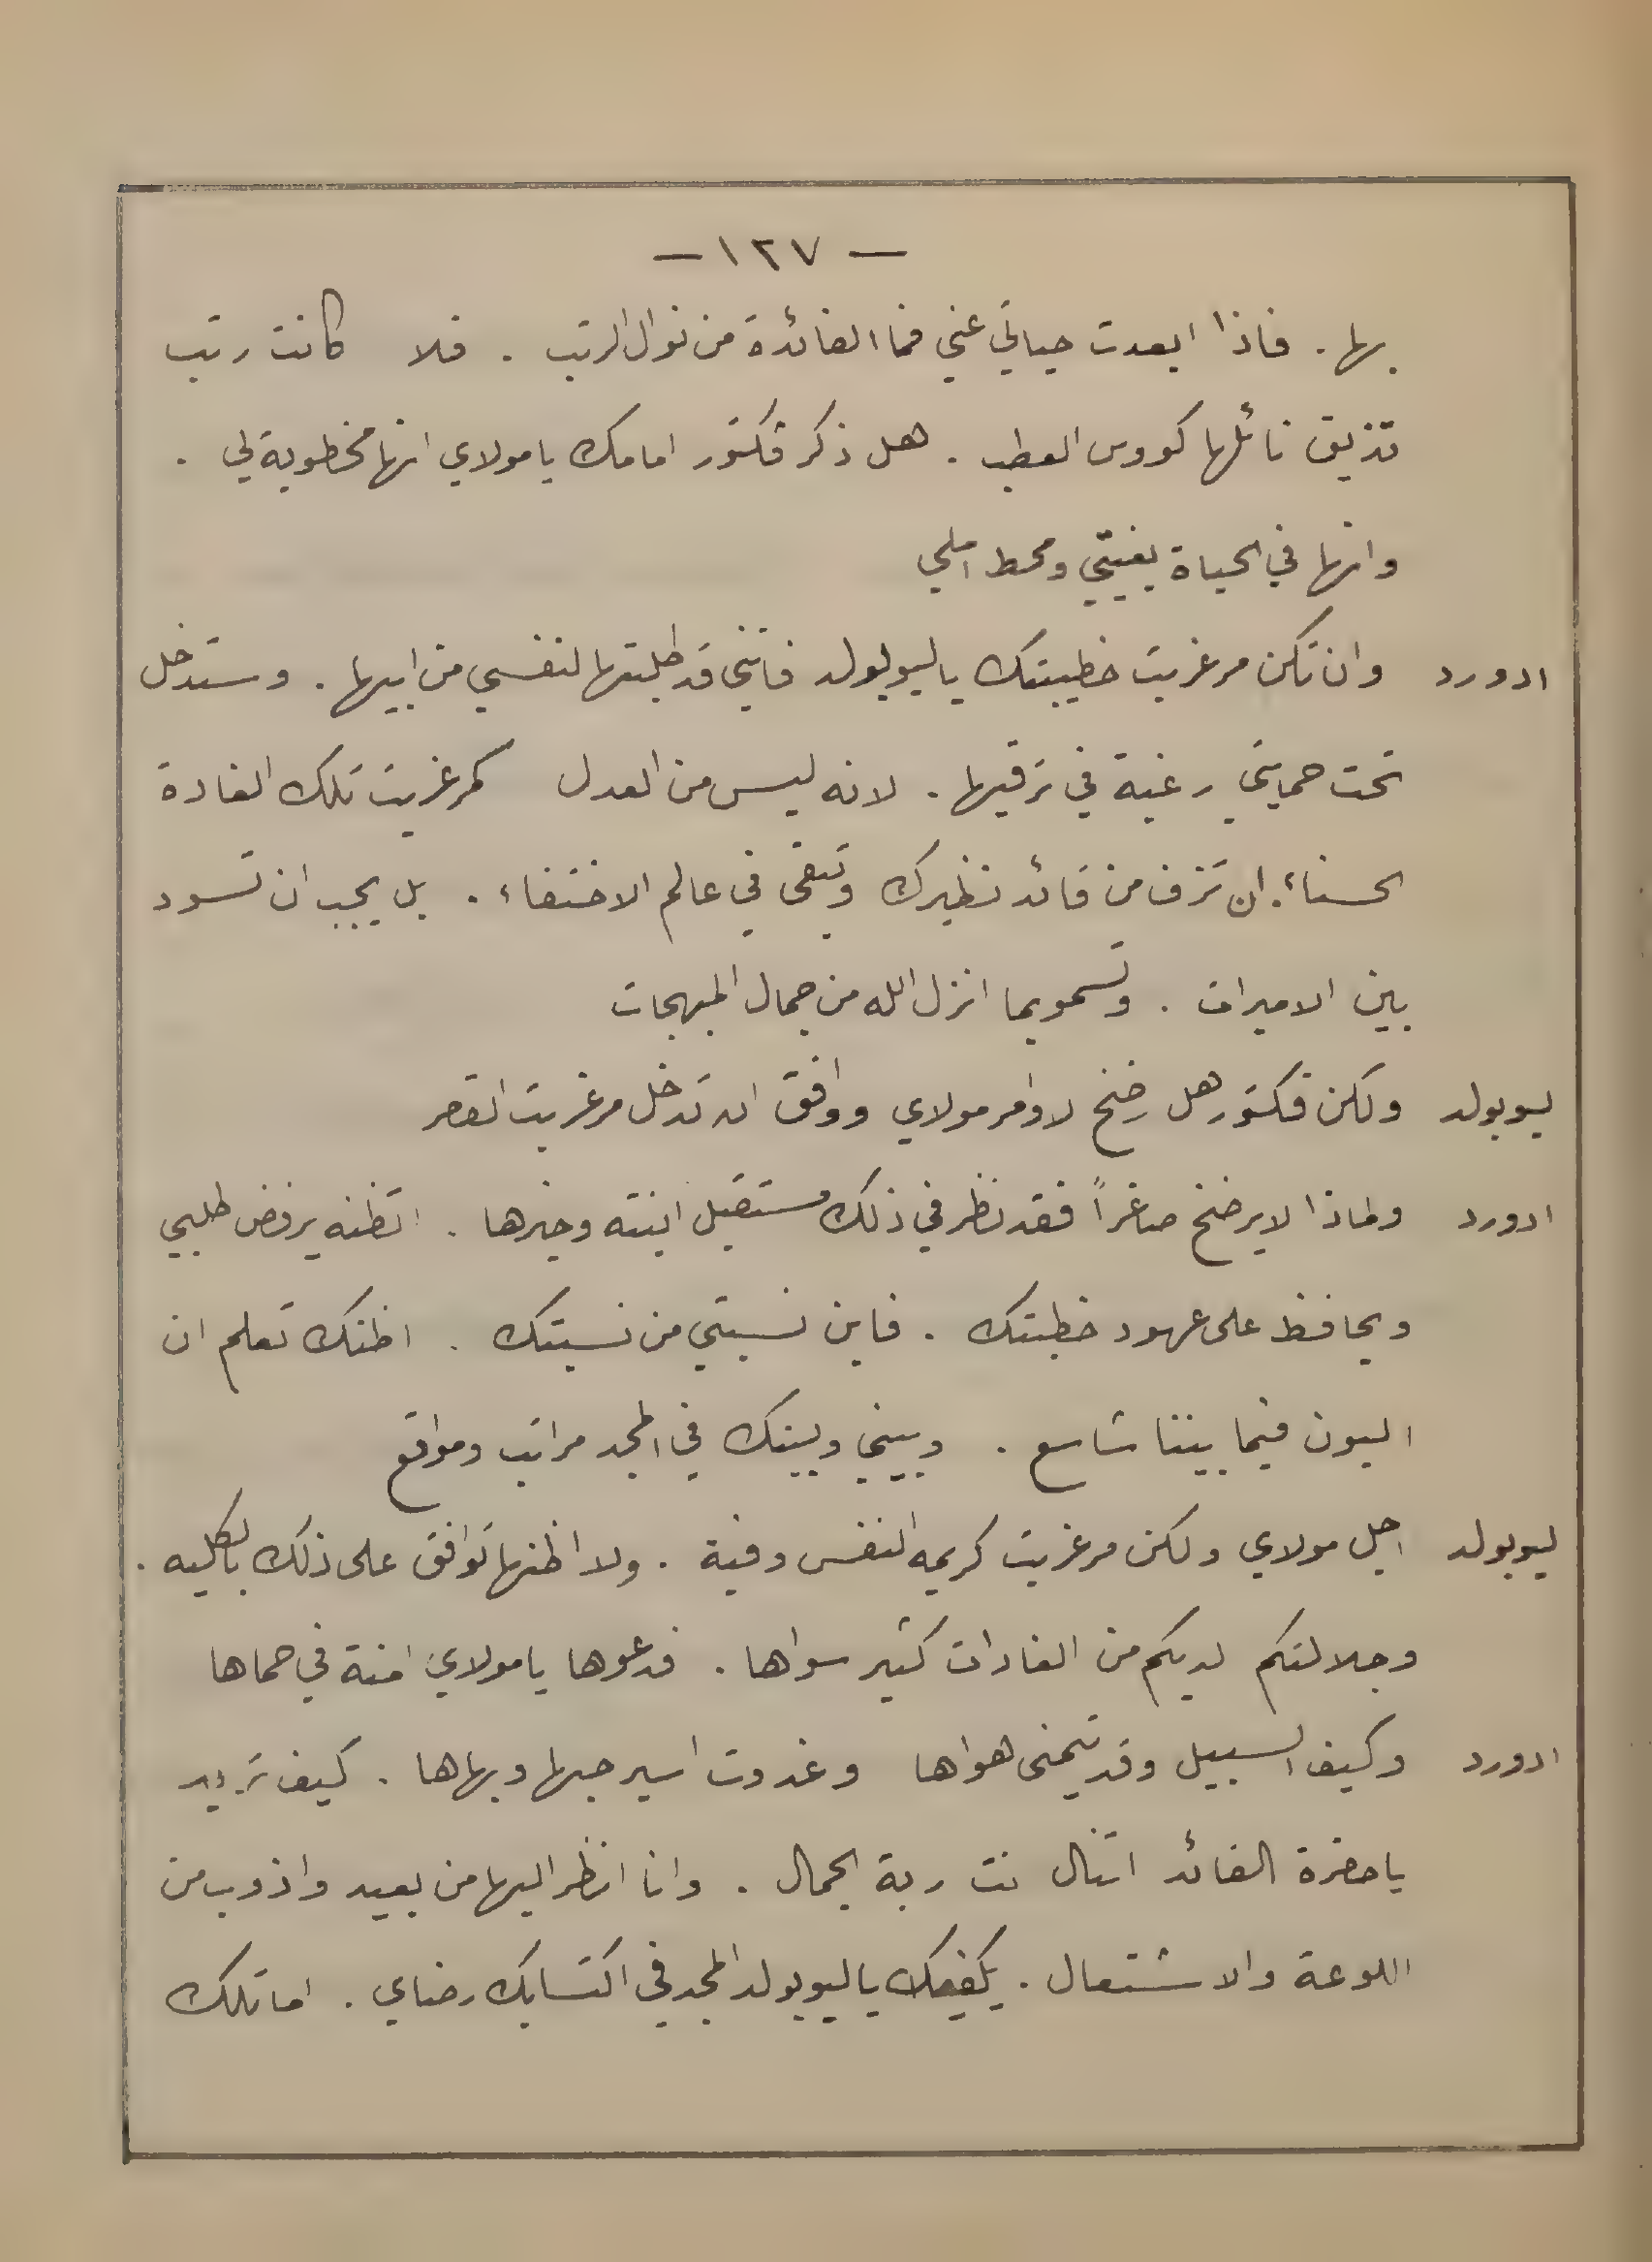 — ١٢٧ —
بها . فاذا ابعدت حياتي عني فما الفائدة من نوال الرتب . فلا كانت رتب
تذيق نائلها كووس العطب . هل ذكر فكتور امامك يا مولاي انها مخطوبة لي .
وانها في الحياة بغيتي ومحط املي
ادورد وان تكن مرغريت خطيبتك يا ليوبولد فانني قد طلبتها لنفسي من ابيها . وستدخل
تحت حمايتي رغبة في ترقيها . لانه ليس من العدل كمرغريت تلك الغادة
الحسناء . ان تزف من قائد نظيرك وتبقى في عالم الاختفاء . بل يجب ان تسود
بين الاميرات . وتسمو بما انزل الله من جمال المبهجات
ليوبولد ولكن فكتور هل رضخ لاوامر مولاي ووافق ان تدخل مرغريت القصر
ادورد ولماذا لا يرضخ صاغراً فقد نظر في ذلك مستقبل ابنته وخيرها . اتظنه يرفض طلبي
ويحافظ على عهود خطبتك . فاين نسبتي من نسبتك . اظنك تعلم ان
البون فيما بيننا شاسع . وبيني وبينك في المجد مراتب ومواقع
ليوبولد اجل مولاي ولكن مرغريت كريمه النفس وفية . ولا اظنها توافق على ذلك بالكليه .
وجلالتكم لديكم من الغادات كثير سواها . فدعوها يا مولاي امنة في حماها
ادورد وكيف السبيل وقد تيمني هواها وغدوت اسير حبها وبهاها . كيف تريد
يا حضرة القائد اتنال نت ربة الجمال . وانا انظر اليها من بعيد واذوب من
اللوعة والاشتعال . يكفيك يا ليوبولد المجد في اكتسابك رضاي . اما تلك